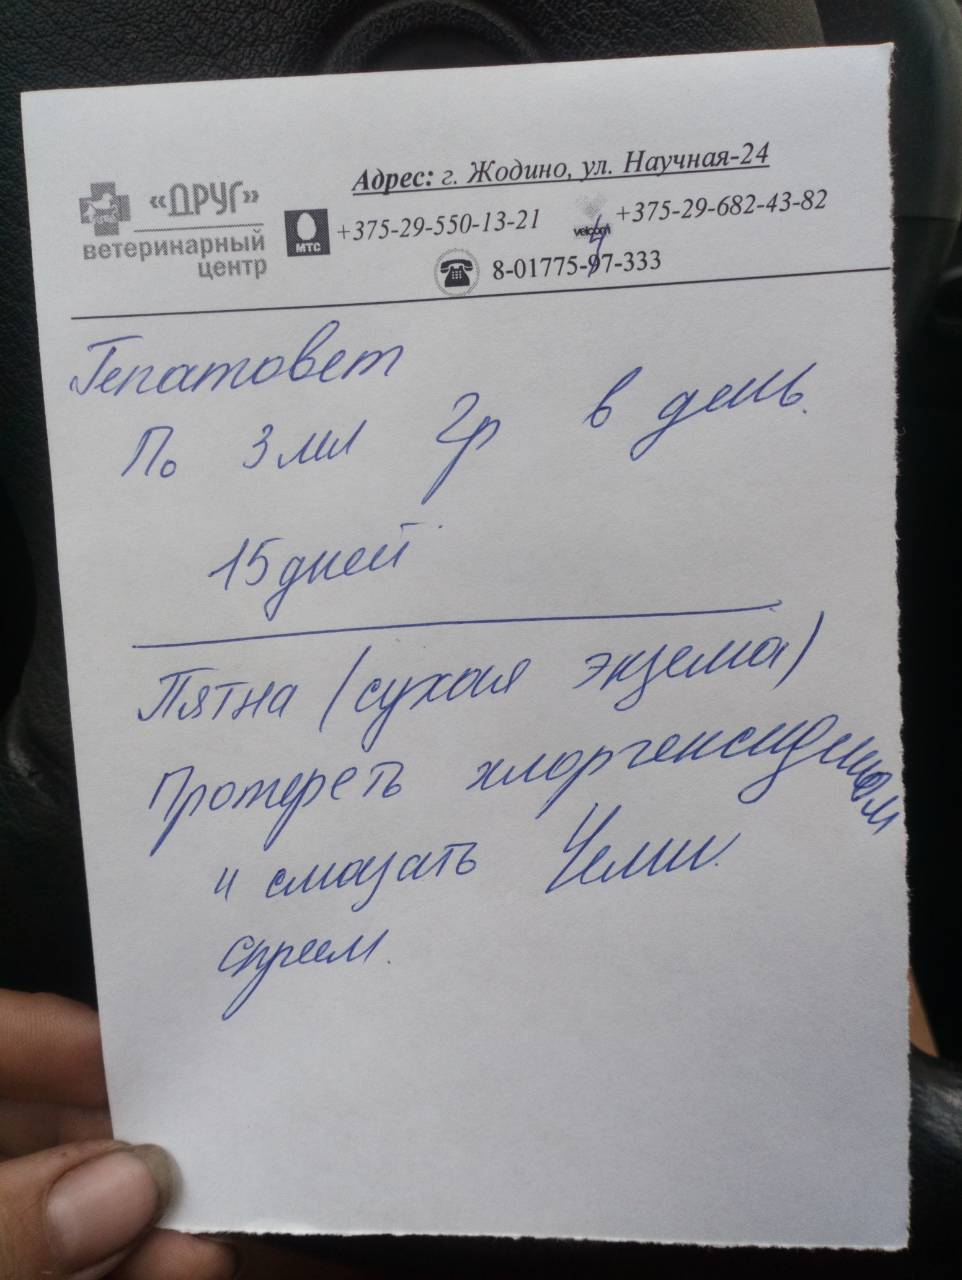 Адрес: г. Жодино, ул. Научная-24
«ДРУГ»
ветеринарный
центр
МТС
+375-29-550-13-21
velcom
+375-29-682-43-82
8-01775-97-333
4
Гепатовет
По 3 мл 2р в день.
15 дней
Пятна (сухая экзема)
Протереть хлоргексидином
и смазать Чеми
спреем.